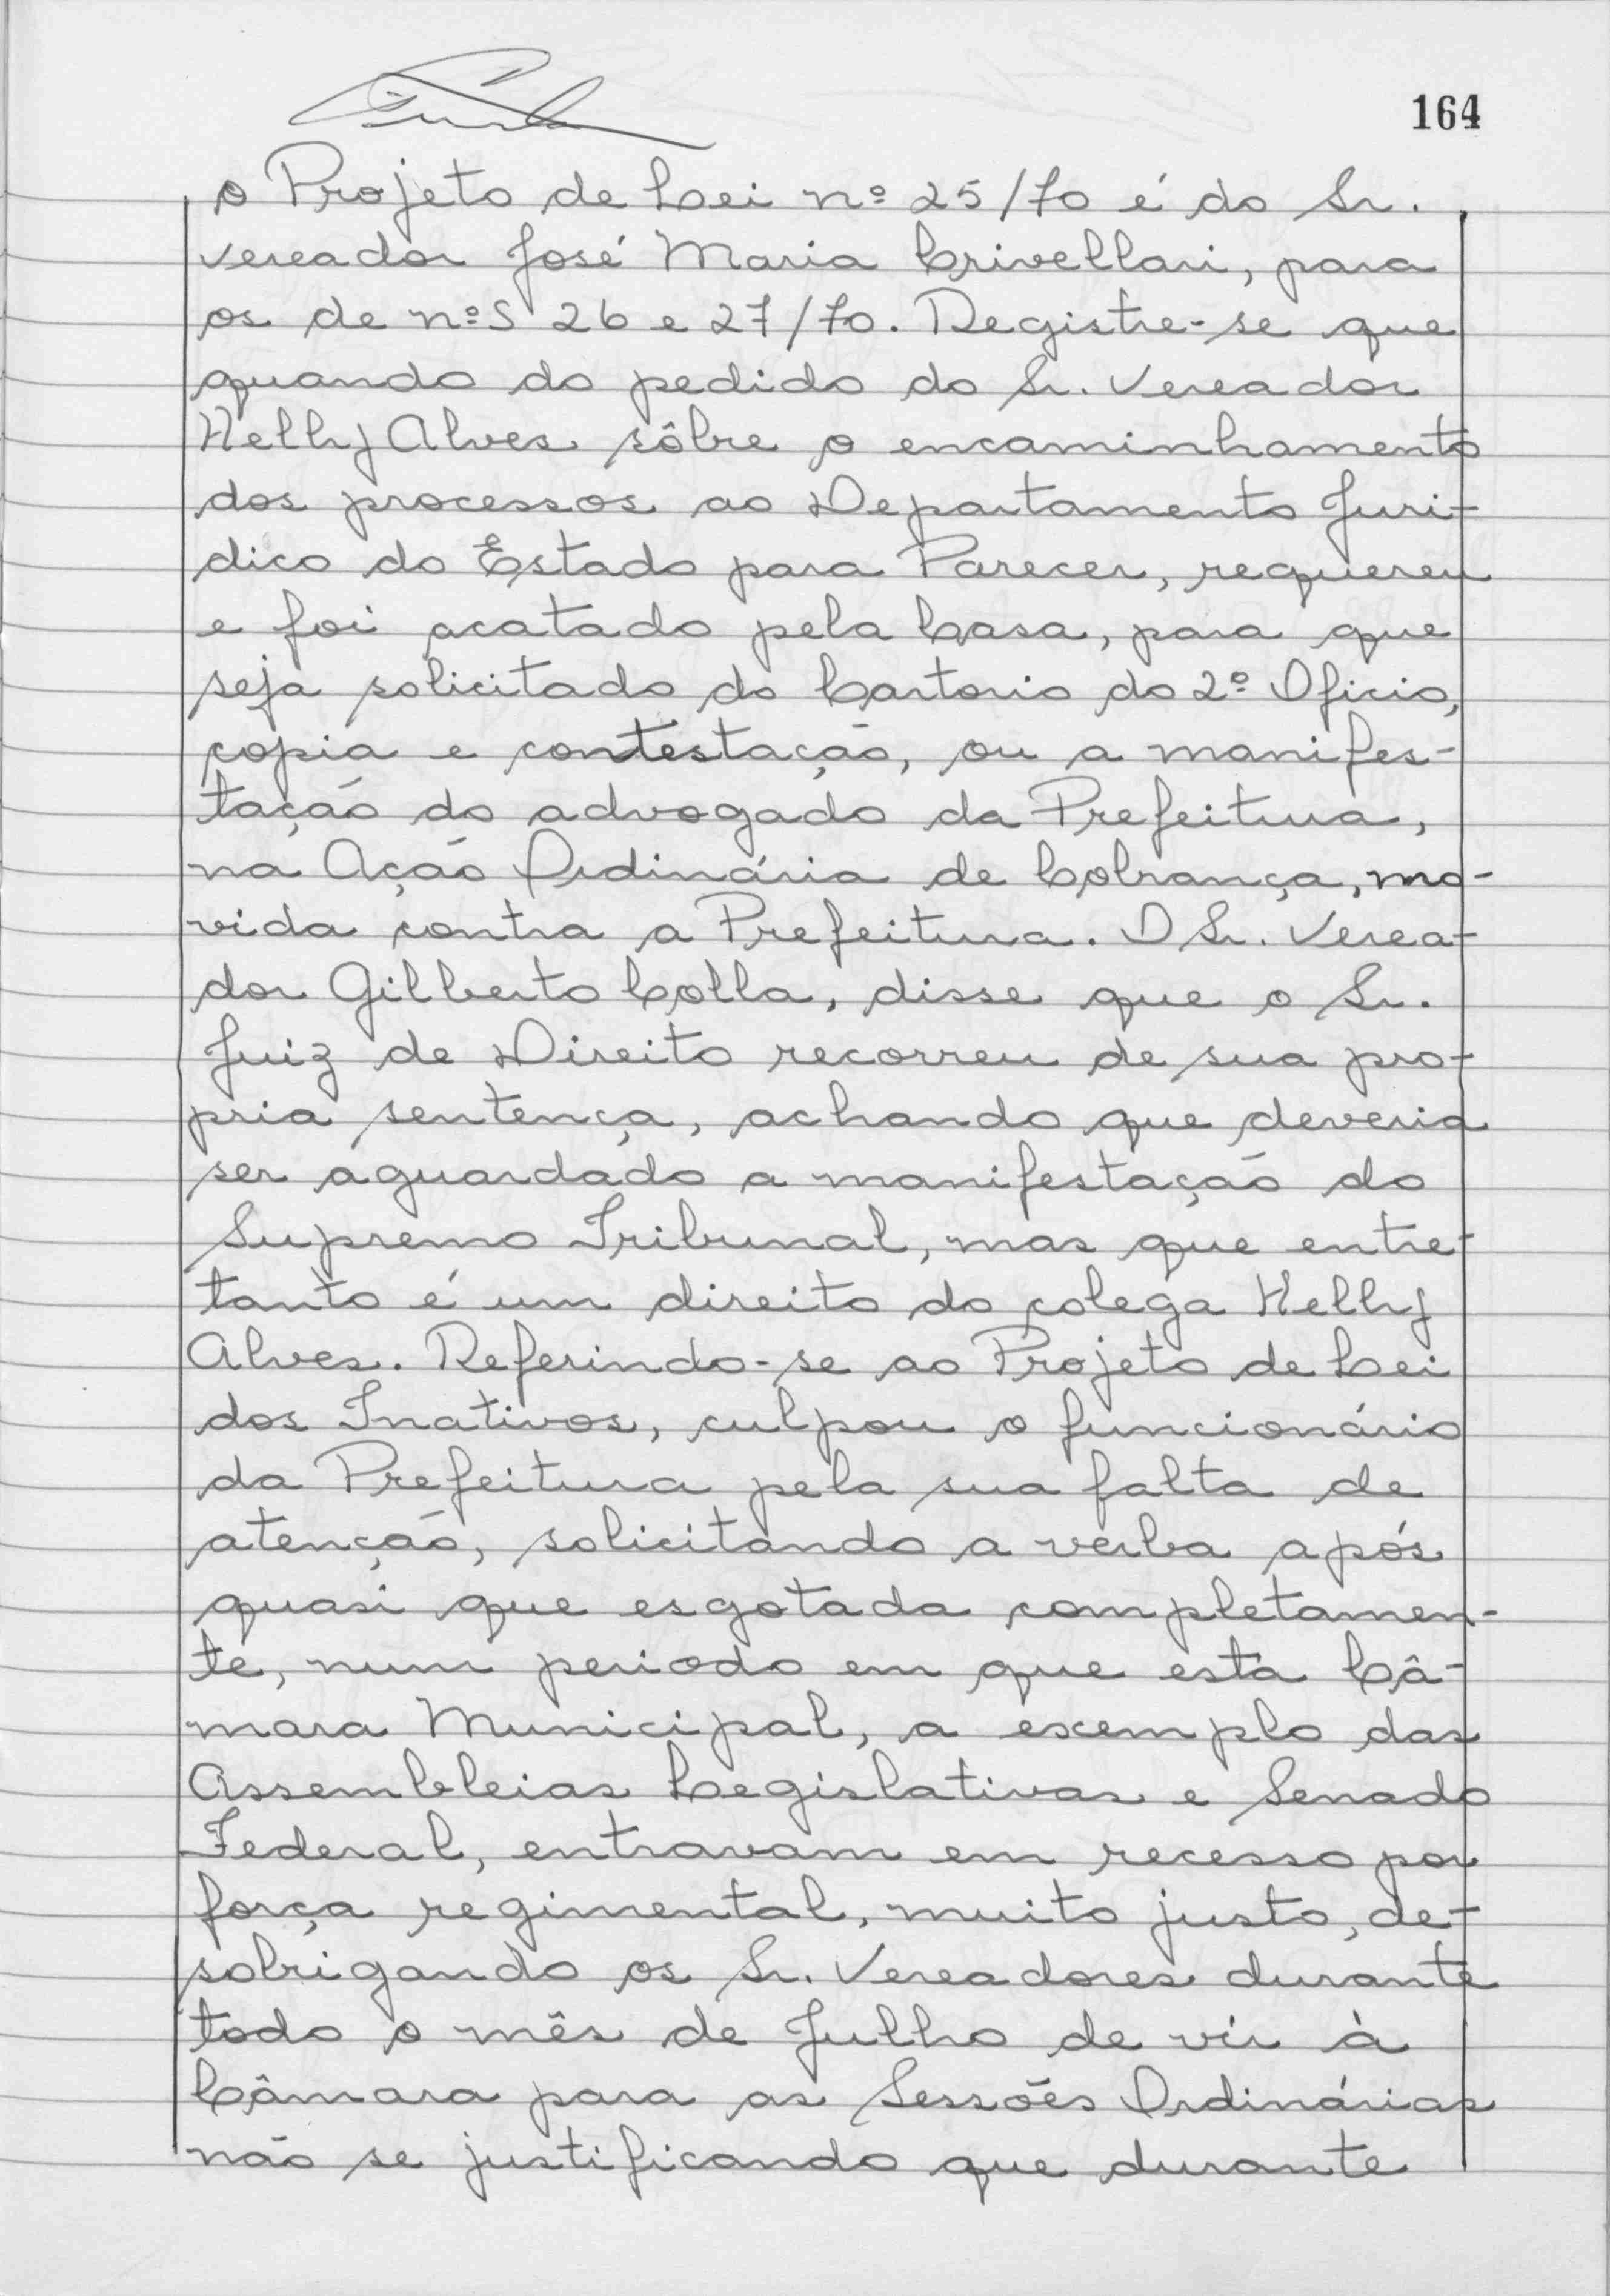 164
o Projeto de Lei nº 25/70 é do Sr.
vereador José Maria Crivellari, para
os de nºs 26 e 27/70. Registre-se que
quando do pedido do Sr. Vereador
Helly Alves sôbre o encaminhamento
dos processos ao Departamento Juri-
dico do Estado para Parecer, requereu
e foi acatado pela Casa, para que
seja solicitado do Cartorio do 2º Oficio,
copia e contestação, ou a manifes-
tação do advogado da Prefeitura,
na Ação Ordinária de Cobrança, mo-
vida contra a Prefeitura. O Sr. Verea-
dor Gilberto Colla, disse que o Sr.
Juiz de Direito recorreu de sua pro-
pria sentença, achando que deveria
ser aguardado a manifestação do
Supremo Tribunal, mas que entre-
tanto é um direito do colega Helly
Alves. Referindo-se ao Projeto de Lei
dos Inativos, culpou o funcionário
da Prefeitura pela sua falta de
atenção, solicitando a verba após
quasi que esgotada completamen-
te, num periodo em que esta Câ-
mara Municipal, a exemplo das
Assembleias Legislativas e Senado
Federal, entravam em recesso por
força regimental, muito justo, de-
sobrigando os Sr. Vereadores durante
todo o mês de Julho de vir à
Câmara para as Sessões Ordinárias
não se justificando que durante